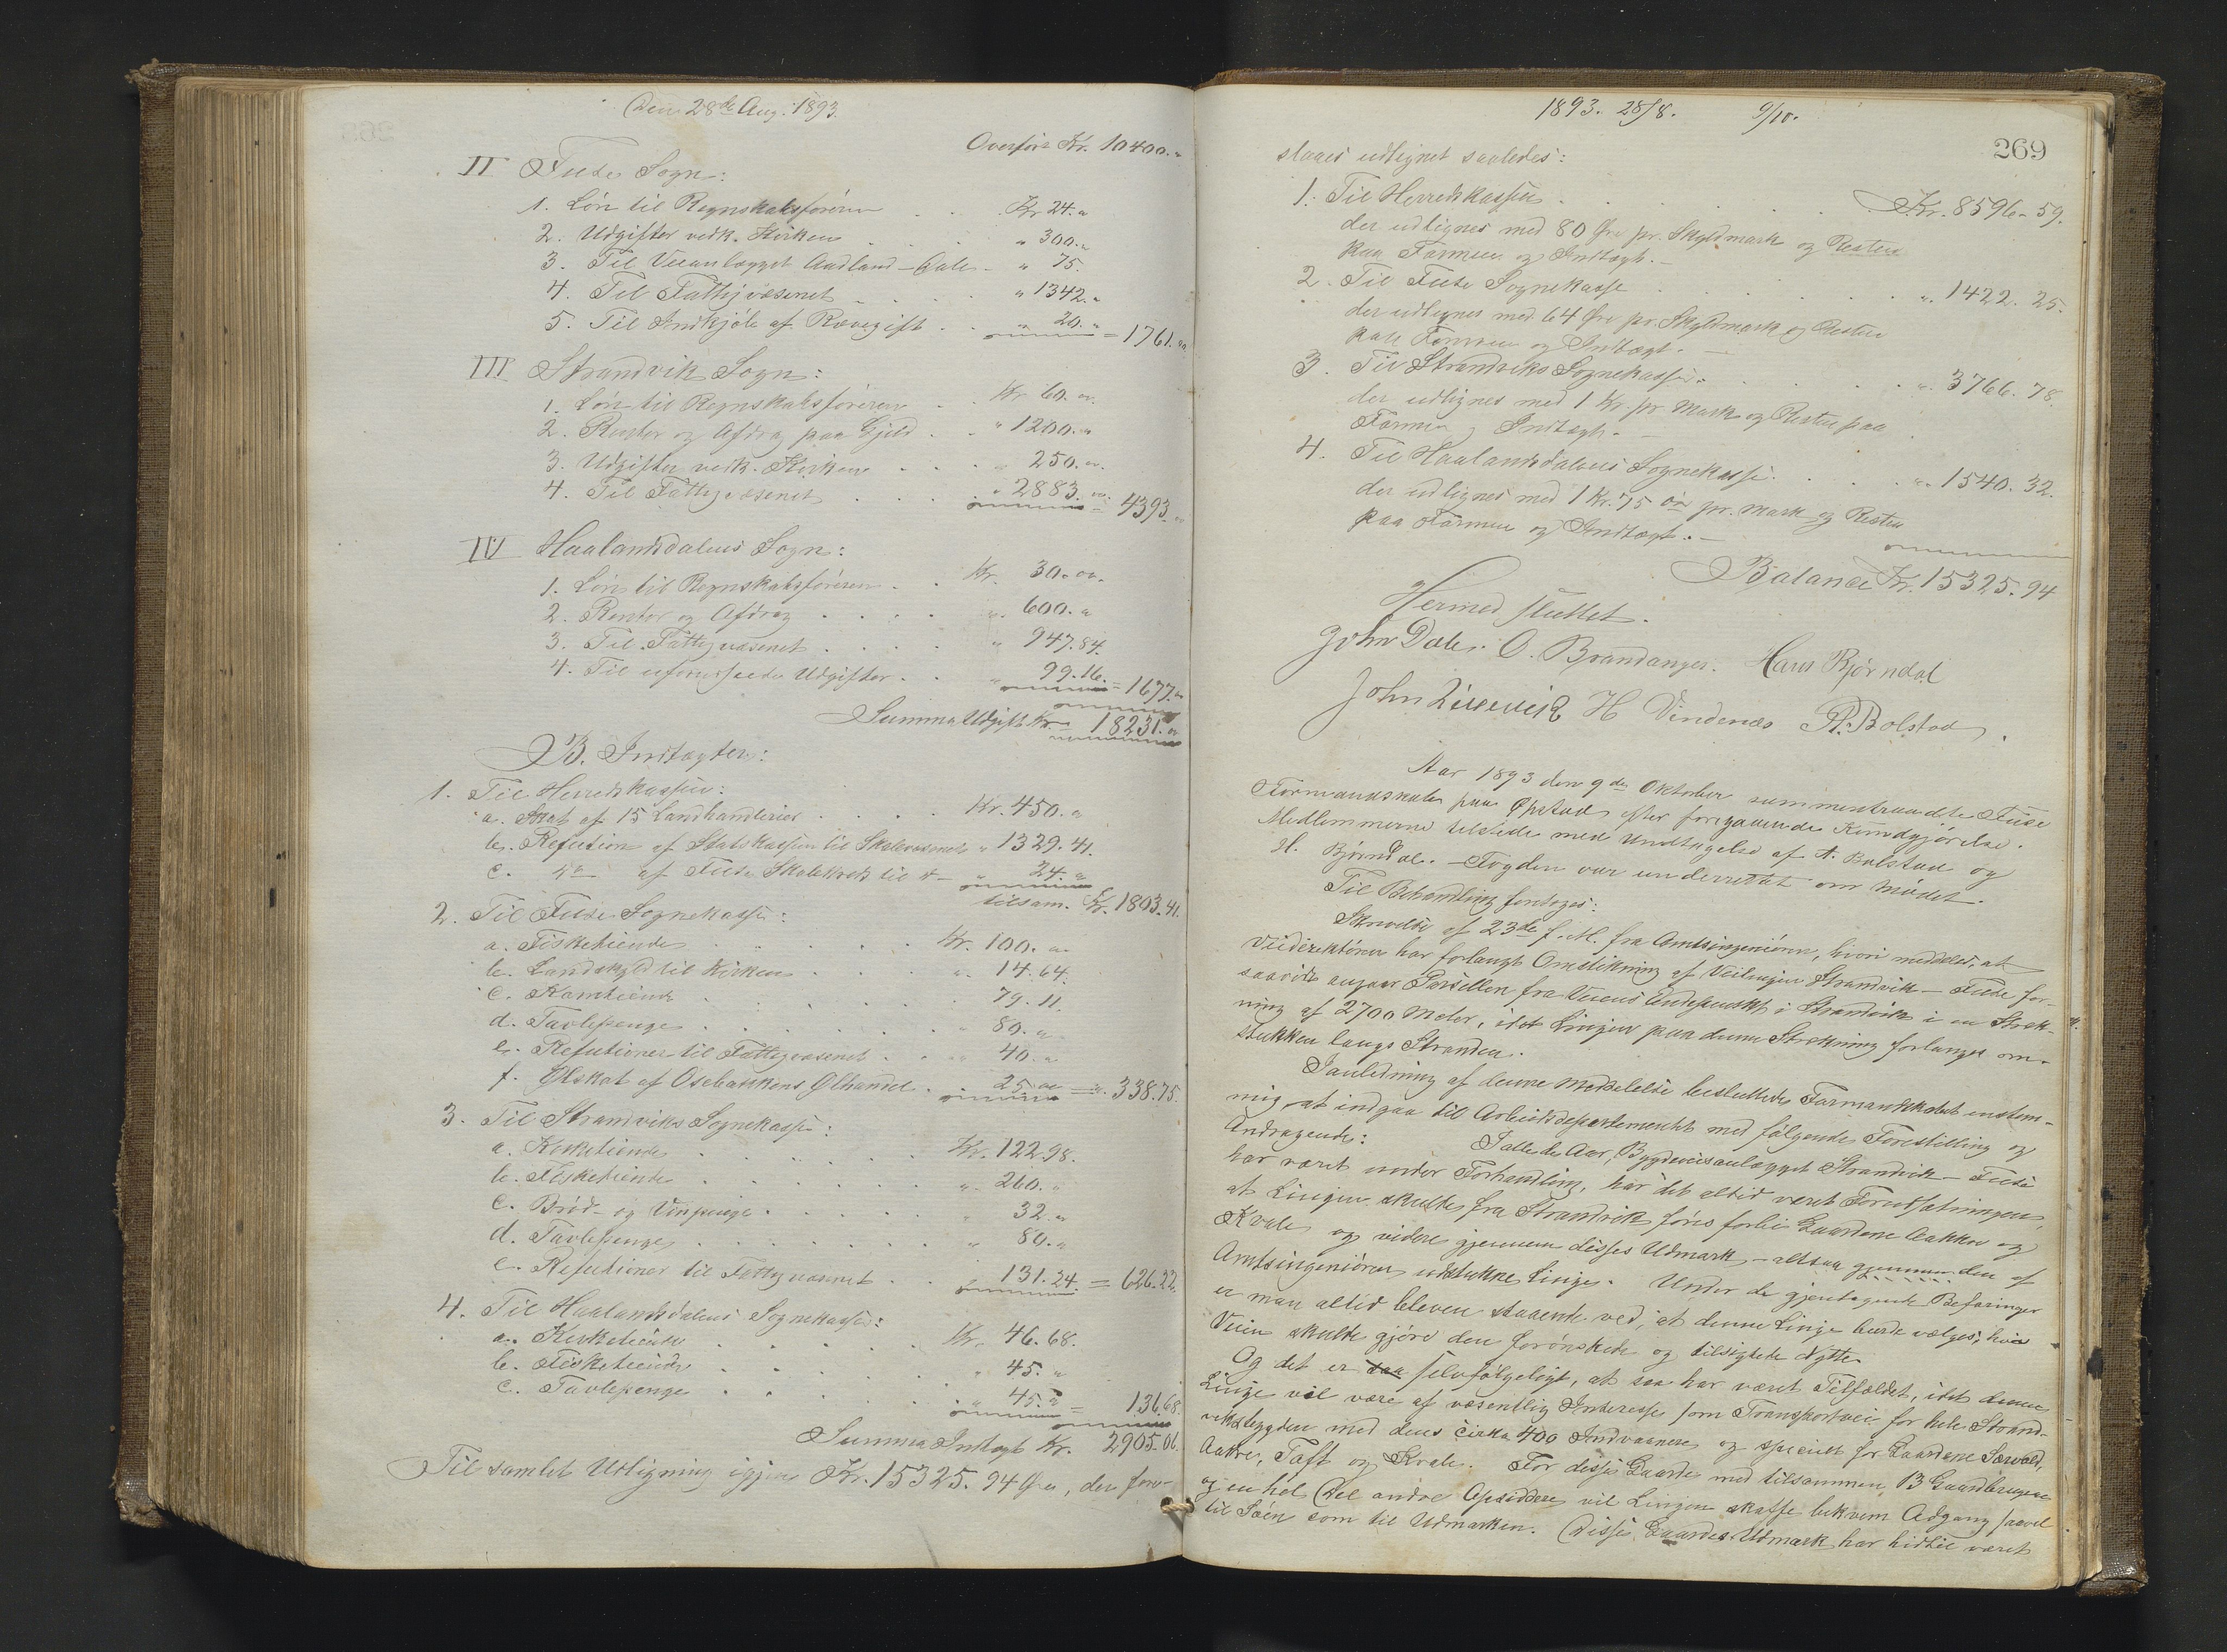 Den 28de Aug. 1893.
Overført Kr. 10400. "
II Fuse Sogn:
1. Løn til Regnskabsføreren . . Kr 24. "
2. Udgifter vedk. Kirken . . . " 300. "
3. Til Veianlægget Aadland - Dale - " 75.
4. Til Fattigvæsenet . . . . " 1342. "
5. Til Indkjøb af Rævegift . . " 20. " = 1761. "
III Strandvik Sogn:
1. Løn til Regnskabsføreren . . Kr 60. "
2. Renter og Afdrag paa Gjeld . . " 1200. "
3. Udgifter vedk. Kirken . . . " 250. "
4. Til Fattigvæsenet . . . " 2883. " = 4393. "
IV Haalandsdalens Sogn:
1. Løn til Regnskabsføreren . . Kr. 30. "
2. Renter og Afdrag . . . . " 600. "
3. Til Fattigvæsenet . . . . " 947.84.
4. Til uforudseede Udgifter . . " 99.16. = 1677. "
Summa Udgift Kr. 18231. "
B. Indtægter:
1. Til Herredskassen:
a. Skat af 15 Landhandlerier . . . . Kr. 450. "
b. Refusion af Statskassen til Skolevæsenet " 1329.41.
c. do af Fuse Skolekreds til " 24. "
tilsam. Kr. 1803.41.
2. Til Fuse Sognekasse:
a. Fisketiende . . . . . Kr. 100. "
b. Landskyld til Kirken . . . " 14.64.
c. Korntiende . . . . . . 79.11.
d. Tavlepenge . . . . . . " 80. "
e. Refutioner til Fattigvæsenet . . " 40. "
f. Ølskat af Osebakkens Ølhandel . . 25. " = " 338.75.
3. Til Strandviks Sognekasse:
a. Kirketiende . . . . . . Kr. 122.98.
b. Fisketiende . . . . . . " 260. "
c. Brød- og Vinpenge . . . . . " 32. "
d. Tavlepenge . . . . . . . " 80. "
e. Refutioner til Fattigvæsenet . . " 131.24. = 626.22.
4. Til Haalandsdalens Sognekasse:
a. Kirketiende . . . . . Kr. 46.68.
b. Fisketiende . . . . . " 45. "
c. Tavlepenge . . . . . " 45. " = 136.68.
Summa Indtægt Kr. 2905.06.
Til samlet Udligning igjen Kr. 15325.94 Øre, der fore-
1893. 28/8. 9/10.
269
slaaes udlignet saaledes:
1. Til Herredskassen . . . . . . Kr. 8596 - 59.
der udlignes med 80 Øre pr. Skyldmark og Resten
paa Formue og Indtægt. -
2. Til Fuse Sognekasse . . . . . . " 1422. 25.
der udlignes med 64 Øre pr. Skyldmark og Resten
paa Formue og Indtægt. -
3. Til Strandviks Sognekasse . . . . . " 3766. 78.
der udlignes med 1 Kr. pr. Mark og Resten paa
Formue og Indtægt. -
4. Til Haalandsdalens Sognekasse . . . . " 1540. 32.
der udlignes med 1 Kr. 75 Øre pr. Mark og Resten
paa Formue og Indtægt. -
Balance Kr. 15325.94
Hermed sluttet.
John Dale. O. Brandanger. Hans Bjørndal
John H Vindenes A. Bolstad.
Aar 1893 den 9de Oktober sammentraadte Fuse
Formandskab paa Opstad efter foregaaende Kundgjørelse.
Medlemmerne tilstede med Undtagelse af A. Bolstad og
H. Bjørndal. - Fogden var underrettet om Mødet.
Til Behandling foretoges:
Skrivelse af 23de f. M. fra Amtsingeniøren, hvori meddeles, at
Veidirektøren har forlangt Omstikning af Veilinjen Strandvik - Fuse for-
saavidt angaar Parsellen fra Veiens Endepunkt i Strandvik i en Stræk-
ning af 2700 Meter, idet Linjen paa denne Strækning forlanges om-
stukken langs Stranden.
I anledning af denne Meddelelse besluttede Formandskabet enstem-
mig at indgaa til Arbeidsdepartementet med følgende Forestilling og
Andragende: I alle de Aar, Bygdeveisanlægget Strandvik - Fuse
har været under Forhandling, har det altid været Forudsætningen,
at Linjen skulde fra Strandvik føres forbi Gaardene Aakre og
Kvale og videre gjennem disses Udmark, - altsaa gjennem den af
Amtsingeniøren udstukne Linje. Under de gjentagende Befaringer
er man altid bleven staaende ved, at denne Linje burde vælges, hvis
Veien skulde gjøre den forønskede og tilsigtede Nytte.
Og det er selvfølgeligt, at saa har været Tilfældet, idet denne
Linje vil være af væsentlig Interesse som Transportvei for hele Strand-
viksbygden med dens cirka 400 Indvaanere og specielt for Gaardene Særvold,
Aakre, Taft og Kvale. For disse Gaarde med tilsammen 13 Gaardbrugere
og en hel Del andre Opsiddere vil Linjen skaffe bekvem Adgang saavel
til Søen som til Udmarken. Disse Gaardes Udmark har hidtil været